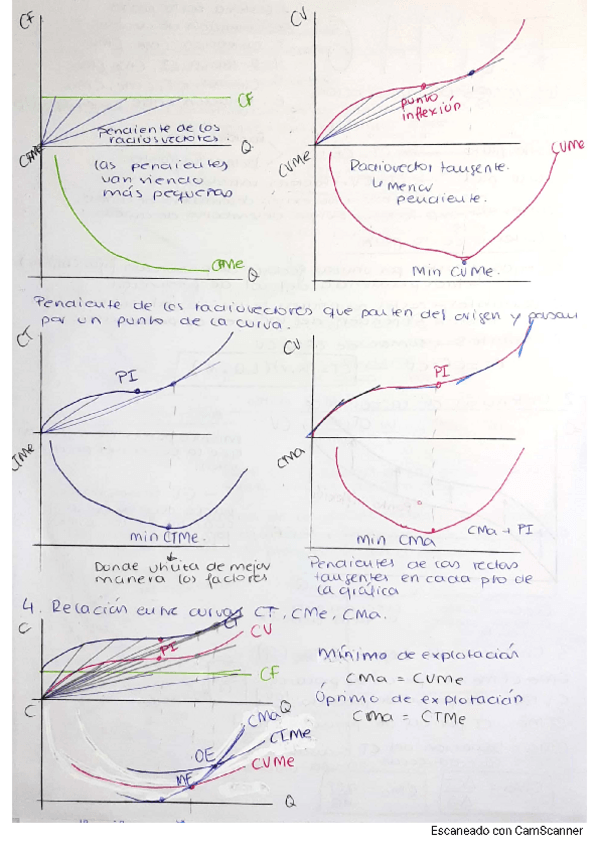 CF
CF
Q
pendiente de los
radiosvectores
CFMe
las pendientes
van siendo
más pequeñas
CFMe
Q
CV
punto
inflexión
CVMe
CVMe
Radiovector tangente.
↳ menor
pendiente.
Min CVMe.
Pendiente de los radiovectores que parten del origen y pasan
por un punto de la curva.
CT
PI
CTMe
min CTMe.
Donde
de mejor
manera los factores
CV
PI
CMa
min CMa
CMa → PI
Pendientes de las rectas
tangentes en cada pto de
la gráfica
4. Relación entre curvas CT, CMe, CMa.
C
CT
CV
PI
CF
Q
C
CMa
CTMe
OE
CVMe
ME
Q
Mínimo de explotación
CMa = CVMe
Óptimo de explotación
CMa = CTMe
Escaneado con CamScanner